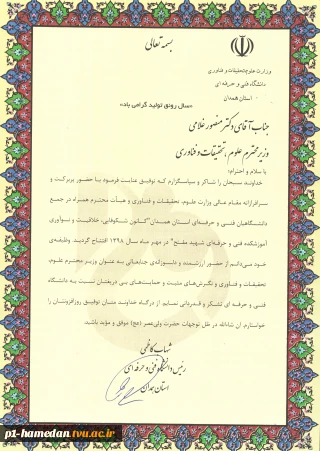 بسمه تعالی
وزارت علوم تحقیقات و فناوری
دانشگاه فنی و حرفه ای
استان همدان
«سال رونق تولید گرامی باد»
جناب آقای دکتر منصور غلامی
وزیر محترم علوم، تحقیقات و فناوری
با سلام و احترام؛
خداوند سبحان را شاکر و سپاسگزارم که توفیق عنایت فرمود با حضور پربرکت و
سرافرازانه مقام عالی وزارت علوم، تحقیقات و فناوری و هیأت محترم همراه در جمع
دانشگاهیان فنی و حرفه‌ای استان همدان "کانون شکوفایی، خلاقیت و نوآوری
آموزشکده فنی و حرفه‌ای شهید مفتح" در مهر ماه سال ۱۳۹۸ افتتاح گردید. وظیفه‌ی
خود می‌دانم از حضور ارزشمند و دلسوزانه‌ی جنابعالی به عنوان وزیر محترم علوم،
تحقیقات و فناوری و نگرش‌های مثبت و حمایت‌های بی دریغتان نسبت به دانشگاه
فنی و حرفه ای تشکر و قدردانی نمایم. از درگاه خداوند منان توفیق روزافزونتان را
خواستارم. ان شاءالله در ظل توجهات حضرت ولی‌عصر (عج) موفق و مؤید باشید.
شهاب کاظمی
رئیس دانشگاه فنی و حرفه‌ای
استان همدان
p1-hamedan.tvu.ac.ir